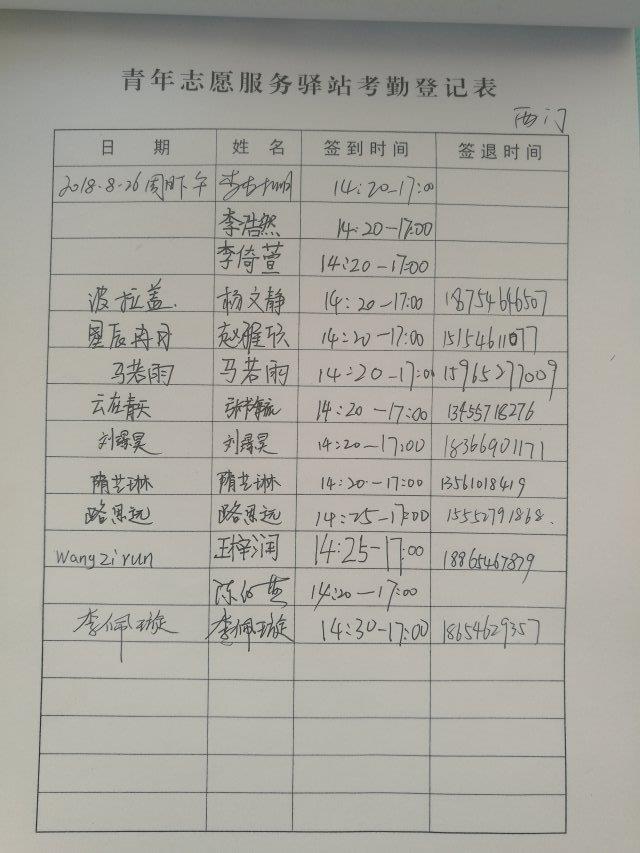 青年志愿服务驿站考勤登记表
西门
日 期 姓 名 签到时间 签退时间
2018.8.26周日下午 14:20-17:00
李浩然 14:20-17:00
李倚萱 14:20-17:00
波拉盖. 杨文静 14:20-17:00 18754646507
星辰冉冉 赵雅欣 14:20-17:00 15154611077
马若雨 马若雨 14:20-17:00 15965277009
云在青天 14:20-17:00 13455718276
刘璟昊 刘璟昊 14:20-17:00 18366901171
隋艺琳 隋艺琳 14:20-17:00 13561018419
路思远 路思远 14:25-17:00 15552791868.
Wangzirun 王梓润 14:25-17:00 18865467879
14:20-17:00
李佩璇 李佩璇 14:30-17:00 18654629357